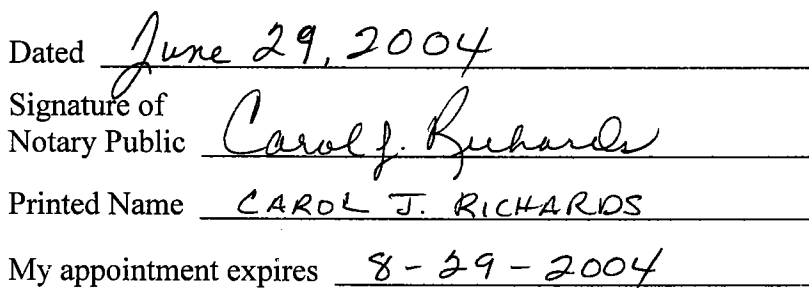 Dated June 29, 2004
Signature of
Notary Public Carol J. Richards
Printed Name CAROL J. RICHARDS
My appointment expires 8-29-2004